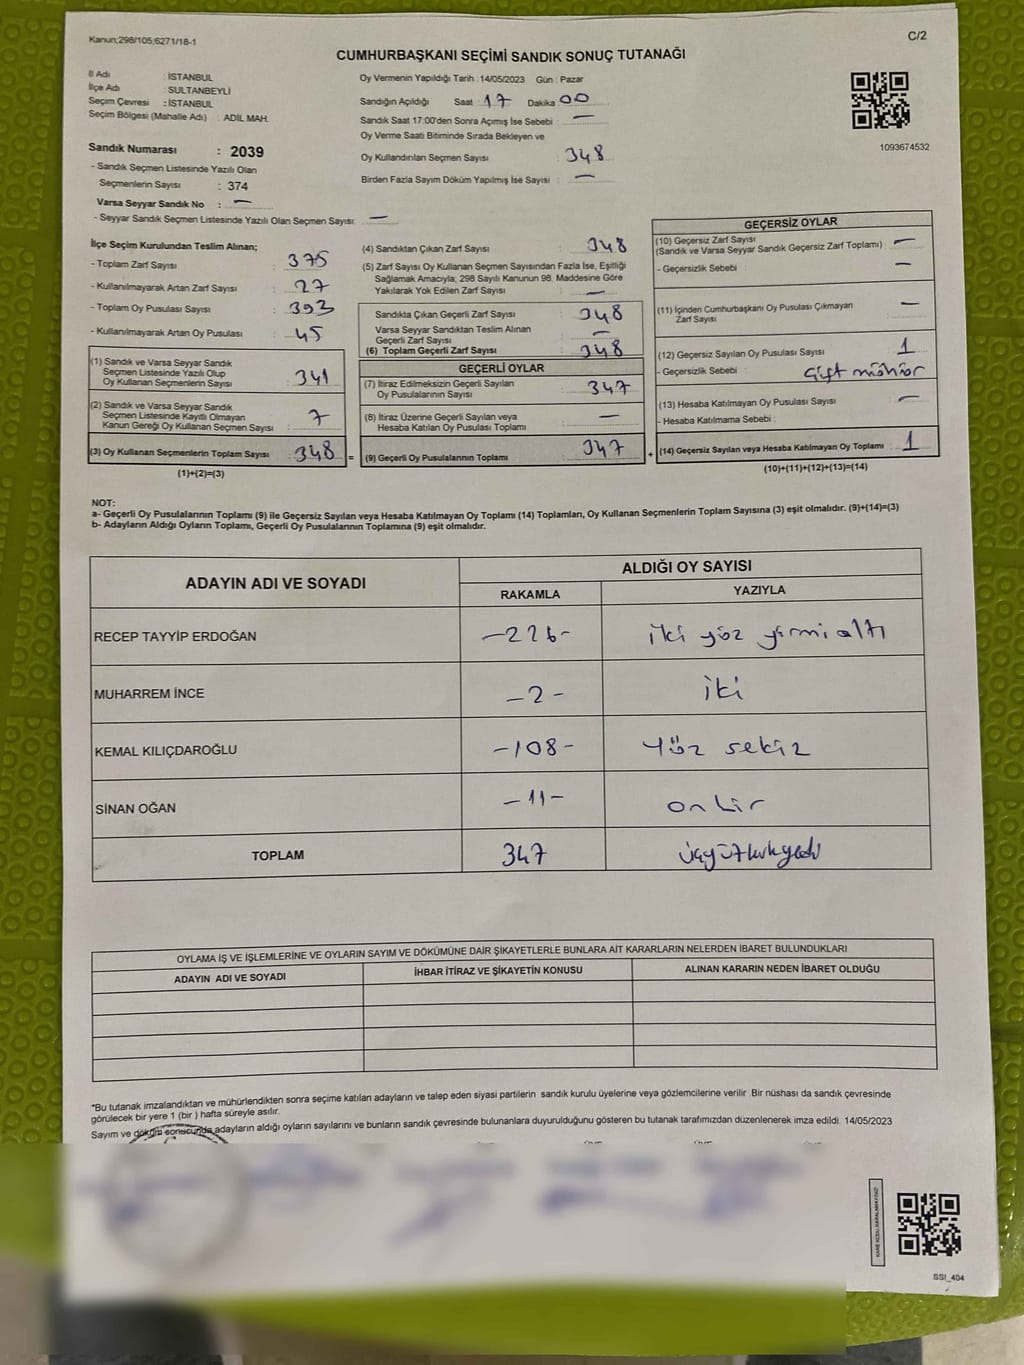 Kanun;298/105;6271/18-1
C/2
CUMHURBAŞKANI SEÇİMİ SANDIK SONUÇ TUTANAĞI
İl Adı : İSTANBUL
İlçe Adı : SULTANBEYLİ
Seçim Çevresi : İSTANBUL
Seçim Bölgesi (Mahalle Adı) : ADİL MAH.
Sandık Numarası : 2039
- Sandık Seçmen Listesinde Yazılı Olan
Seçmenlerin Sayısı : 374
Varsa Seyyar Sandık No : —
- Seyyar Sandık Seçmen Listesinde Yazılı Olan Seçmen Sayısı: —
Oy Vermenin Yapıldığı Tarih : 14/05/2023 Gün : Pazar
Sandığın Açıldığı Saat : 17 Dakika : 00
Sandık Saat 17:00'den Sonra Açımış İse Sebebi : —
Oy Verme Saati Bitiminde Sırada Bekleyen ve
Oy Kullandırılan Seçmen Sayısı : 348
Birden Fazla Sayım Döküm Yapılmış İse Sayısı : —
1093674532
İlçe Seçim Kurulundan Teslim Alınan;
- Toplam Zarf Sayısı : 375
- Kullanılmayarak Artan Zarf Sayısı : 27
- Toplam Oy Pusulası Sayısı : 393
- Kullanılmayarak Artan Oy Pusulası : 45
(1) Sandık ve Varsa Seyyar Sandık
Seçmen Listesinde Yazılı Olup
Oy Kullanan Seçmenlerin Sayısı : 341
(2) Sandık ve Varsa Seyyar Sandık
Seçmen Listesinde Kayıtlı Olmayan
Kanun Gereği Oy Kullanan Seçmen Sayısı : 7
(3) Oy Kullanan Seçmenlerin Toplam Sayısı : 348 =
(1)+(2)=(3)
(4) Sandıktan Çıkan Zarf Sayısı : 348
(5) Zarf Sayısı Oy Kullanan Seçmen Sayısından Fazla İse, Eşitliği
Sağlamak Amacıyla; 298 Sayılı Kanunun 98. Maddesine Göre
Yakılarak Yok Edilen Zarf Sayısı : —
Sandıkta Çıkan Geçerli Zarf Sayısı : 348
Varsa Seyyar Sandıktan Teslim Alınan
Geçerli Zarf Sayısı : —
(6) Toplam Geçerli Zarf Sayısı : 348
GEÇERLİ OYLAR
(7) İtiraz Edilmeksizin Geçerli Sayılan
Oy Pusulalarının Sayısı : 347
(8) İtiraz Üzerine Geçerli Sayılan veya
Hesaba Katılan Oy Pusulası Toplamı : —
(9) Geçerli Oy Pusulalarının Toplamı : 347 +
GEÇERSİZ OYLAR
(10) Geçersiz Zarf Sayısı : —
(Sandık ve Varsa Seyyar Sandık Geçersiz Zarf Toplamı)
- Geçersizlik Sebebi : —
(11) İçinden Cumhurbaşkanı Oy Pusulası Çıkmayan
Zarf Sayısı : —
(12) Geçersiz Sayılan Oy Pusulası Sayısı : 1
- Geçersizlik Sebebi : Çift mühür
(13) Hesaba Katılmayan Oy Pusulası Sayısı : —
- Hesaba Katılmama Sebebi :
(14) Geçersiz Sayılan veya Hesaba Katılmayan Oy Toplamı : 1
(10)+(11)+(12)+(13)=(14)
NOT:
a- Geçerli Oy Pusulalarının Toplamı (9) ile Geçersiz Sayılan veya Hesaba Katılmayan Oy Toplamı (14) Toplamları, Oy Kullanan Seçmenlerin Toplam Sayısına (3) eşit olmalıdır. (9)+(14)=(3)
b- Adayların Aldığı Oyların Toplamı, Geçerli Oy Pusulalarının Toplamına (9) eşit olmalıdır.
ADAYIN ADI VE SOYADI
ALDIĞI OY SAYISI
RAKAMLA YAZIYLA
RECEP TAYYİP ERDOĞAN -226- iki yüz yirmi altı
MUHARREM İNCE -2- iki
KEMAL KILIÇDAROĞLU -108- Yüz sekiz
SİNAN OĞAN -11- on bir
TOPLAM 347 üçyüzkırkyedi
OYLAMA İŞ VE İŞLEMLERİNE VE OYLARIN SAYIM VE DÖKÜMÜNE DAİR ŞİKAYETLERLE BUNLARA AİT KARARLARIN NELERDEN İBARET BULUNDUKLARI
ADAYIN ADI VE SOYADI İHBAR İTİRAZ VE ŞİKAYETİN KONUSU ALINAN KARARIN NEDEN İBARET OLDUĞU
*Bu tutanak imzalandıktan ve mühürlendikten sonra seçime katılan adayların ve talep eden siyasi partilerin sandık kurulu üyelerine veya gözlemcilerine verilir. Bir nüshası da sandık çevresinde
görülecek bir yere 1 (bir ) hafta süreyle asılır.
Sayım ve döküm sonucunda adayların aldığı oyların sayılarını ve bunların sandık çevresinde bulunanlara duyurulduğunu gösteren bu tutanak tarafımızdan düzenlenerek imza edildi. 14/05/2023
SSI_404